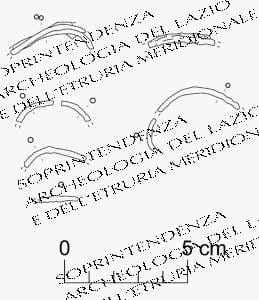 SOPRINTENDENZA
ARCHEOLOGIA DEL LAZIO
E DELL'ETRURIA MERIDIONALE
SOPRINTENDENZA
ARCHEOLOGIA DEL LAZIO
E DELL'ETRURIA MERIDIONALE
0 5 cm
SOPRINTENDENZA
ARCHEOLOGIA DEL LAZIO
E DELL'ETRURIA MERIDIONALE